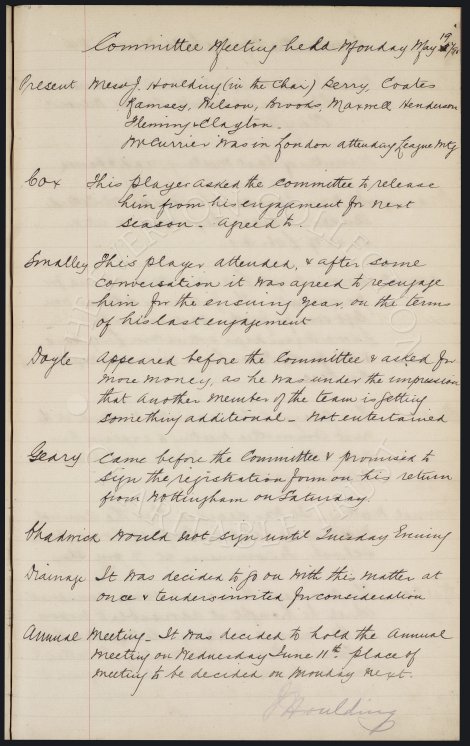 Committee Meeting held Monday May 19/90
Present Messrs J. Houlding (in the Chair) Berry, Coates
Ramsey, Wilson, Brooks, Maxwell Henderson
Fleming & Clayton.
Mr Currier was in London attending League Mtg
Cox This player asked the Committee to release
him from his engagement for next
season - agreed to.
Smalley This player attended, & after some
conversation it was agreed to reengage
him for the ensuing year, on the terms
of his last engagement
Doyle Appeared before the Committee & asked for
more money, as he was under the impression
that another member of the team is getting
something additional - not entertained
Geary Came before the Committee & promised to
sign the registration form on his return
from Nottingham on Saturday.
Chadwick Would not sign until Tuesday Evening
Drainage It was decided to go on with this matter at
once & tenders invited for consideration
Annual Meeting - It was decided to hold the Annual
Meeting on Wednesday June 11th. place of
meeting to be decided on Monday next.
J Houlding